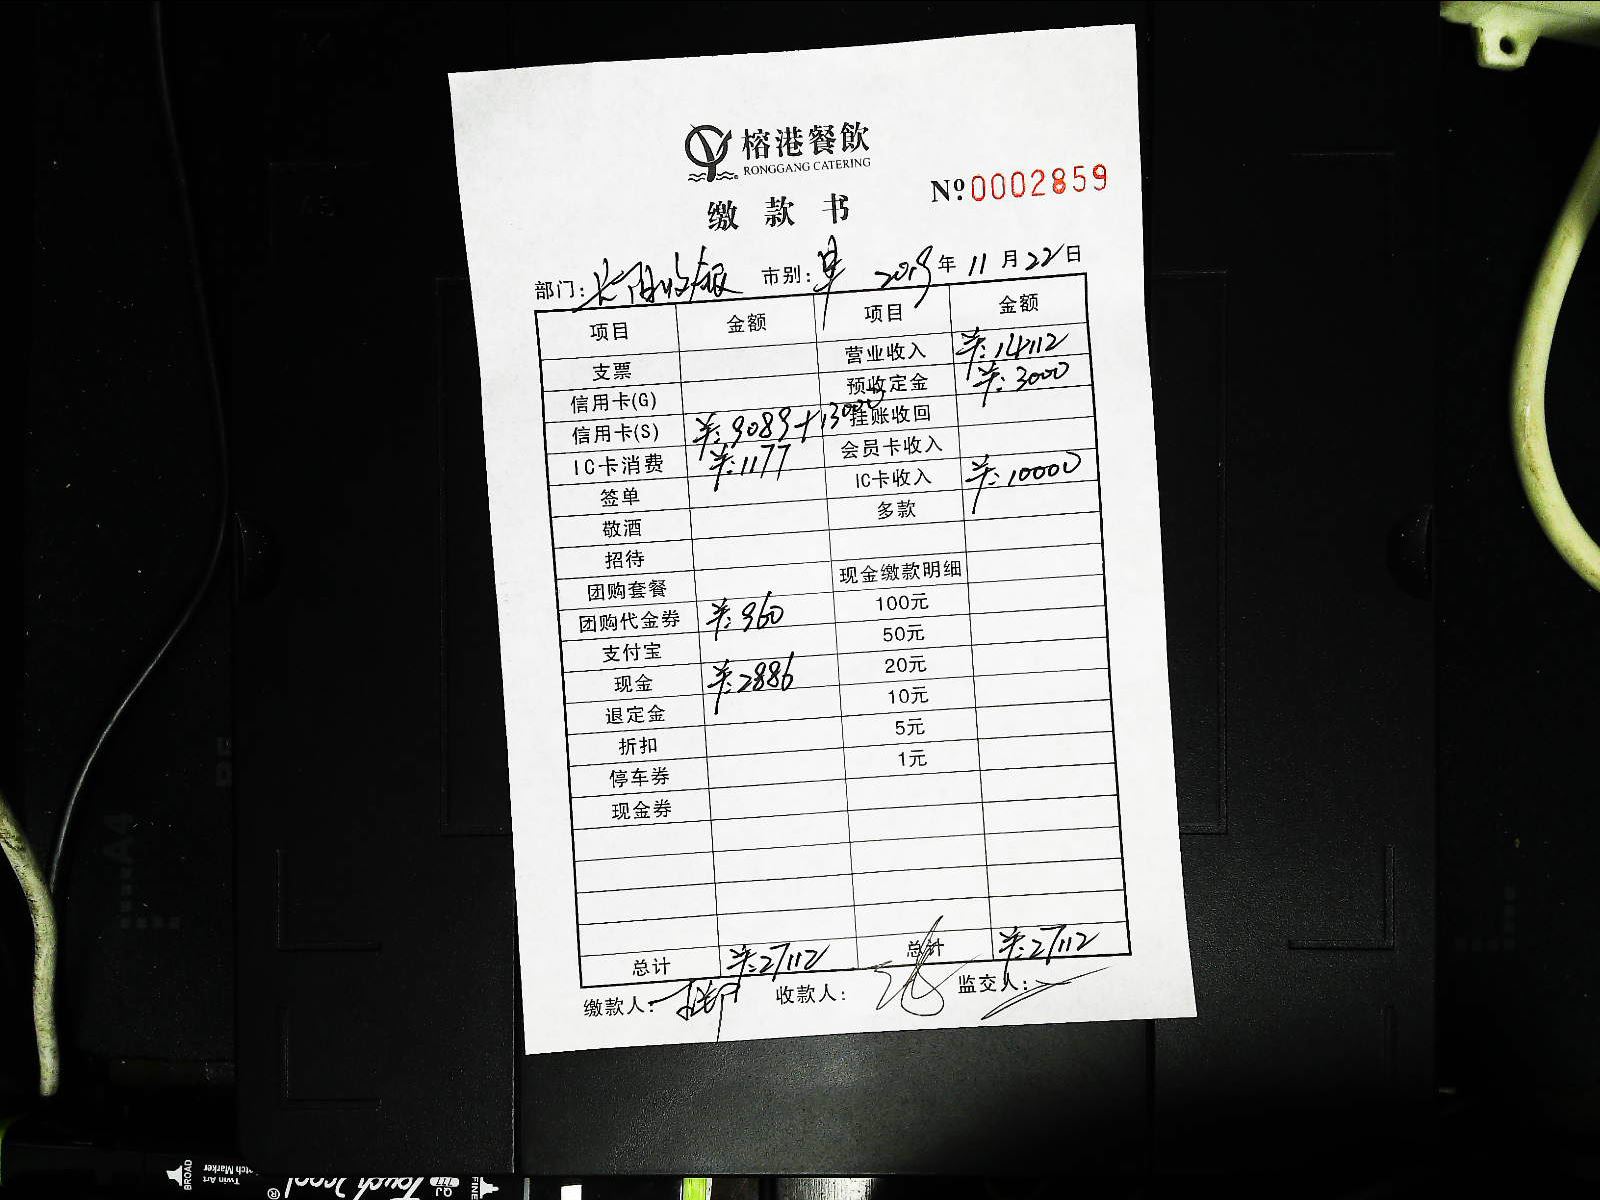 榕港餐飲
RONGGANG CATERING
缴款书
№ 0002859
部门: 长阳收银 市别: 早 2019年11月22日
项目 金额 项目 金额
支票 营业收入 ¥:14112
信用卡(G) 预收定金 ¥:3000
信用卡(S) ¥:9089+13000 挂账收回
IC卡消费 ¥:1177 会员卡收入
签单 IC卡收入 ¥:10000
敬酒 多款
招待
团购套餐 现金缴款明细
团购代金券 ¥:960 100元
支付宝 50元
现金 ¥:2886 20元
退定金 10元
折扣 5元
停车券 1元
现金券
总计 ¥:27112 总计 ¥:27112
缴款人: 收款人: 监交人:
A4
BROAD
Twin Art
Touch Marker
FINE